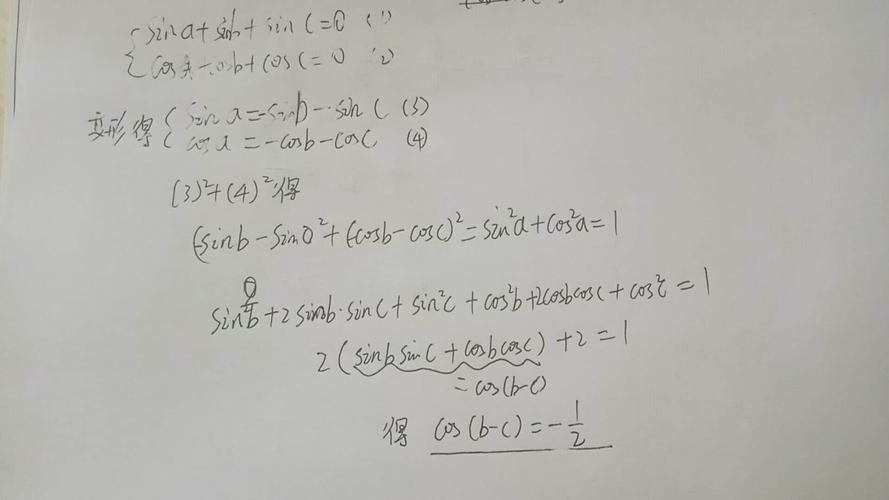 { sin a + sin b + sin C = 0 (1)
{ cos a + cos b + cos C = 0 (2)
变形得 { sin a = -sin b - sin C (3)
{ cos a = -cos b - cos C (4)
(3)² + (4)² 得
(-sin b - sin C)² + (-cos b - cos C)² = sin²a + cos²a = 1
sin²b + 2 sin b · sin C + sin²C + cos²b + 2cos b cos C + cos²C = 1
2 (sin b sin C + cos b cos C) + 2 = 1
= cos(b-C)
得 cos (b-C) = -1/2